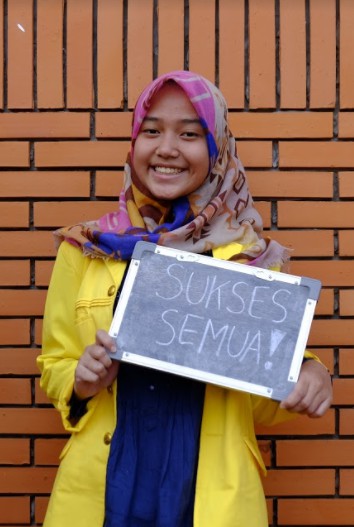 SUKSES
SEMUA!